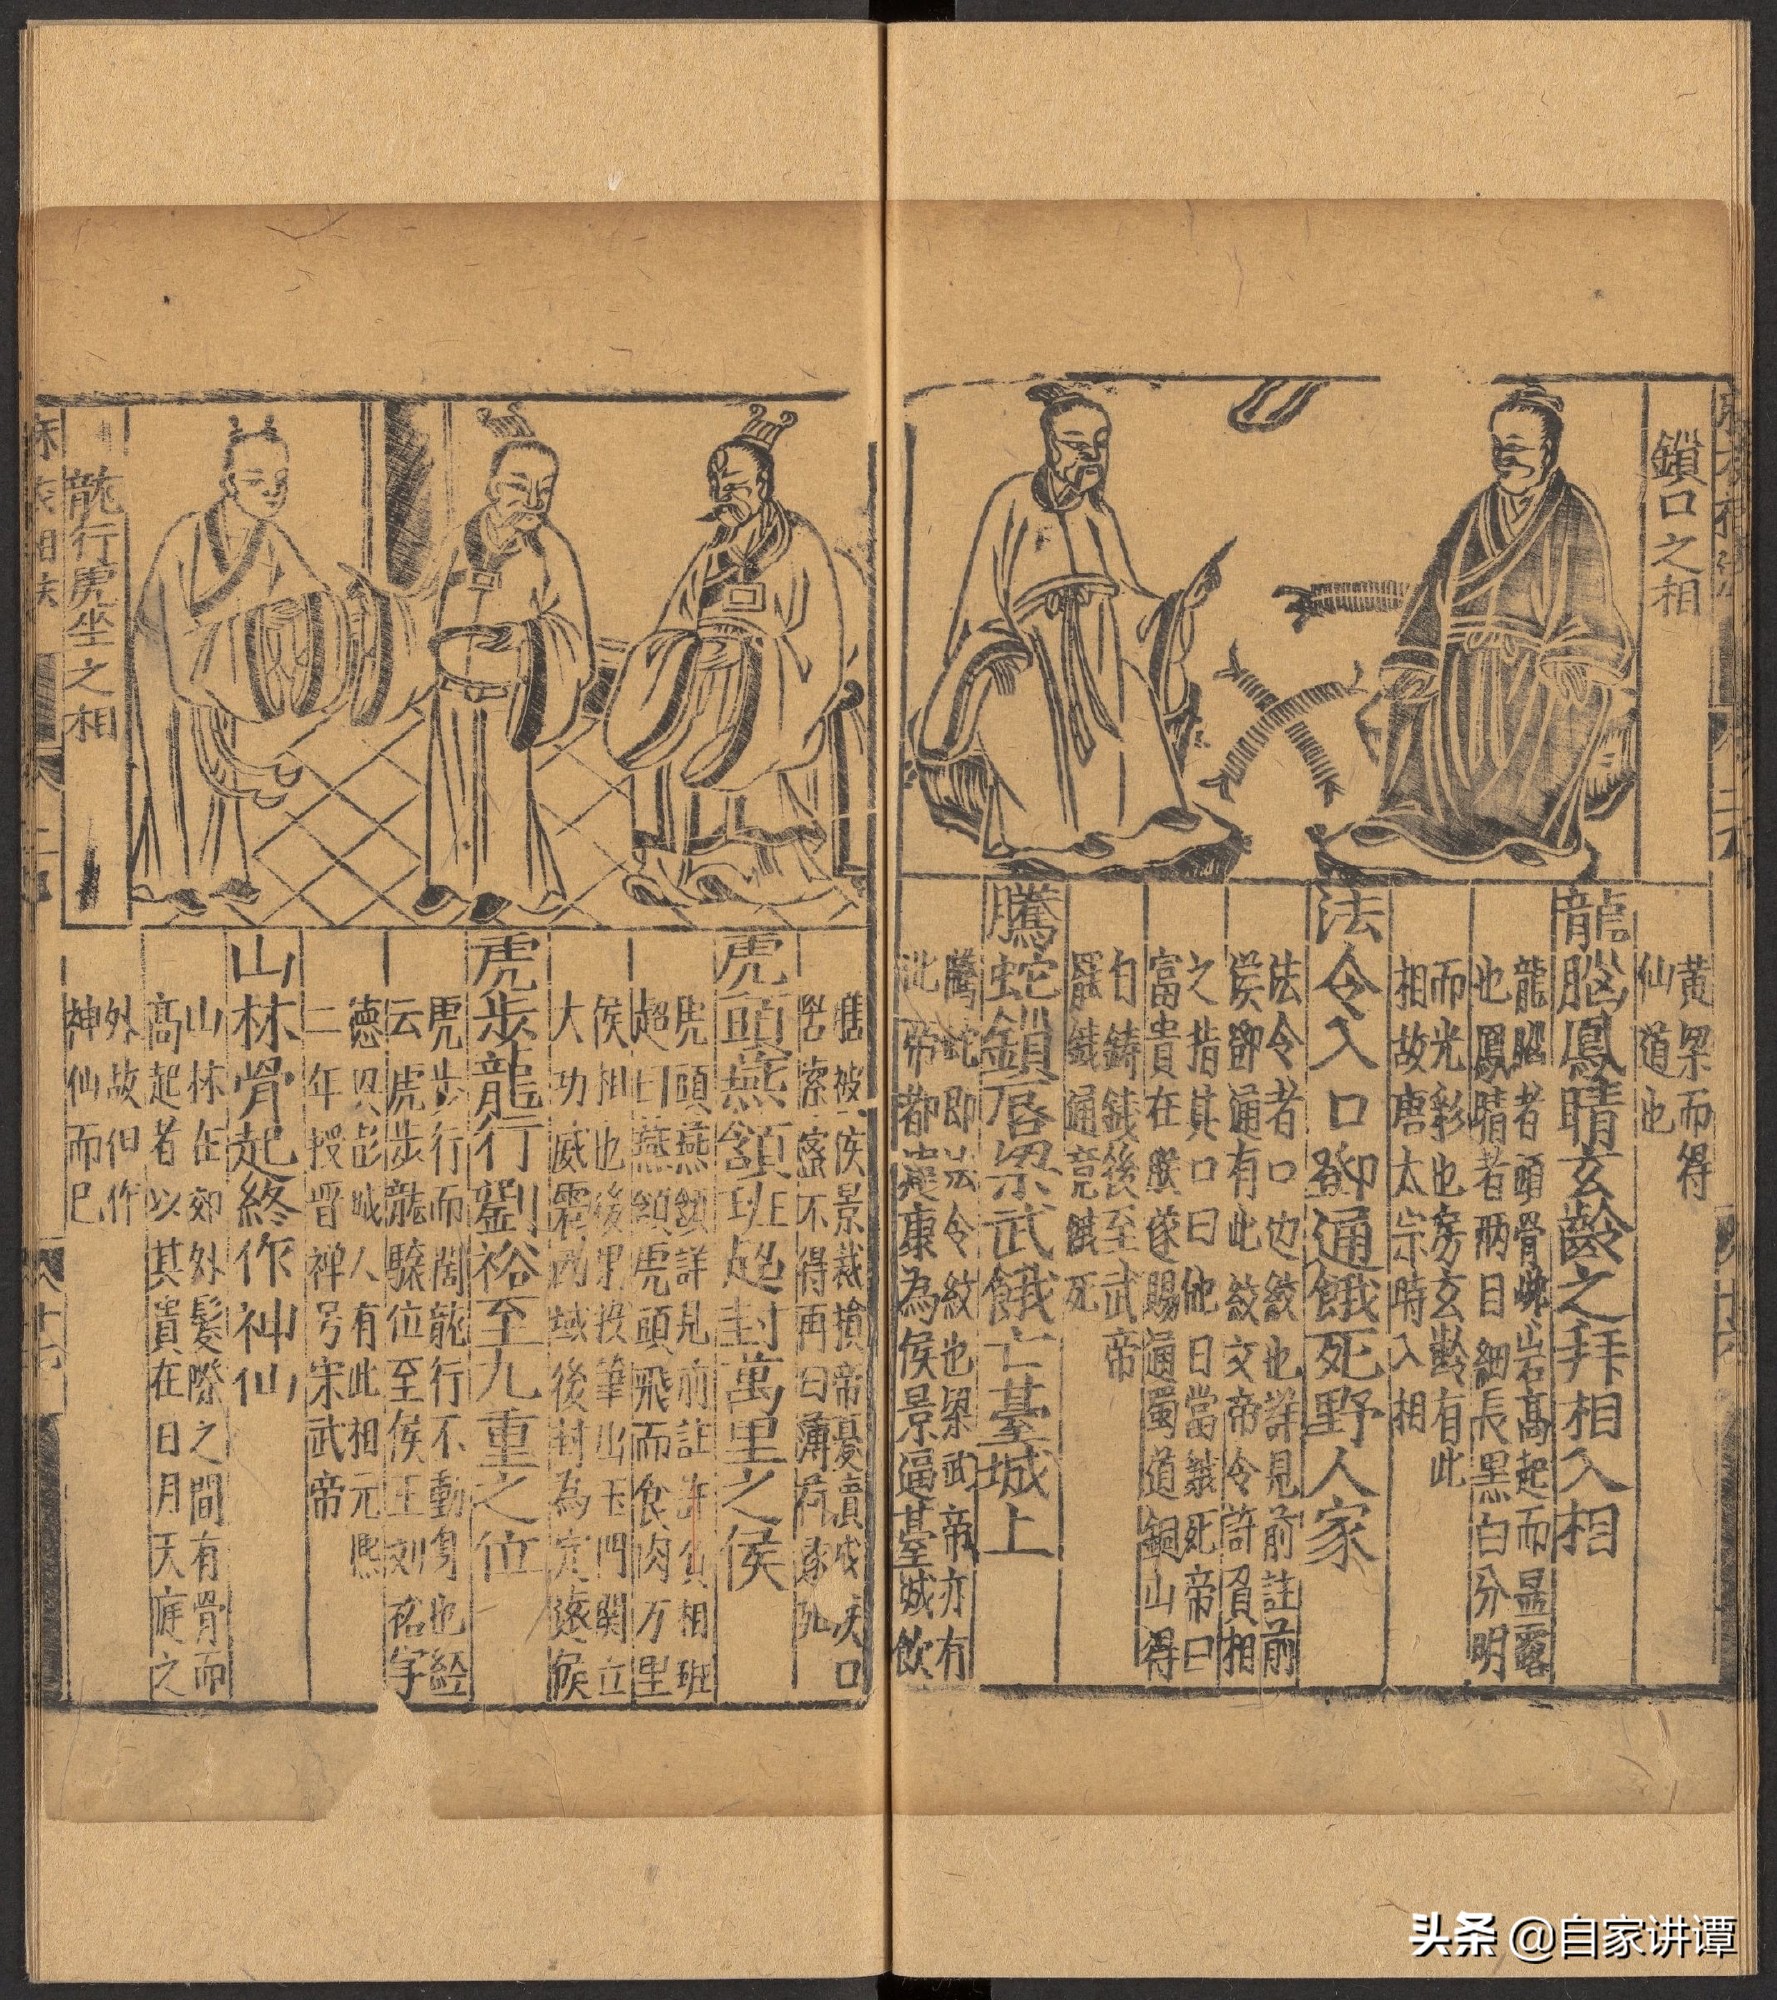 鎖口之相
黄梁而得
仙道也
龍腦鳳睛玄齡之拜相入相
龍腦者頭骨崢岩高起而显露
也鳳睛者兩目細長黑白分明
而光彩也房玄齡有此
相故唐太宗時入相
法令入口鄧通餓死野人家
法令者口边紋也詳見前註前
侯鄧通有此紋文帝令許負相
之指其口曰他日當餓死帝曰
富貴在朕遂賜通蜀道銅山得
自鋳錢後至武帝
罷錢通竟餓死
騰蛇鎖唇梁武餓亡臺城上
騰蛇即法令紋也梁武帝亦有
此帝都建康為侯景逼臺城飲
膳被侯景裁損帝憂憤成疾口
苦索蜜不得再曰荷荷遂殂
龍行虎坐之相
虎頭燕頷班超封萬里之侯
虎頭燕頷詳見前註許負相班
超曰燕頷虎頭飛而食肉万里
侯相也後果投筆出玉門関立
大功威霜西域後封為定遠侯
虎步龍行劉裕至九重之位
虎步行而闊龍行不動身也経
云虎步龍驤位至侯王刘裕字
德輿彭城人有此相元熙
二年授晋禅号宋武帝
山林骨起終作神仙
山林在郊外髮際之間有骨而
高起者以其貴在日月天庭之
外故但作
神仙而已
头条 @自家讲谭